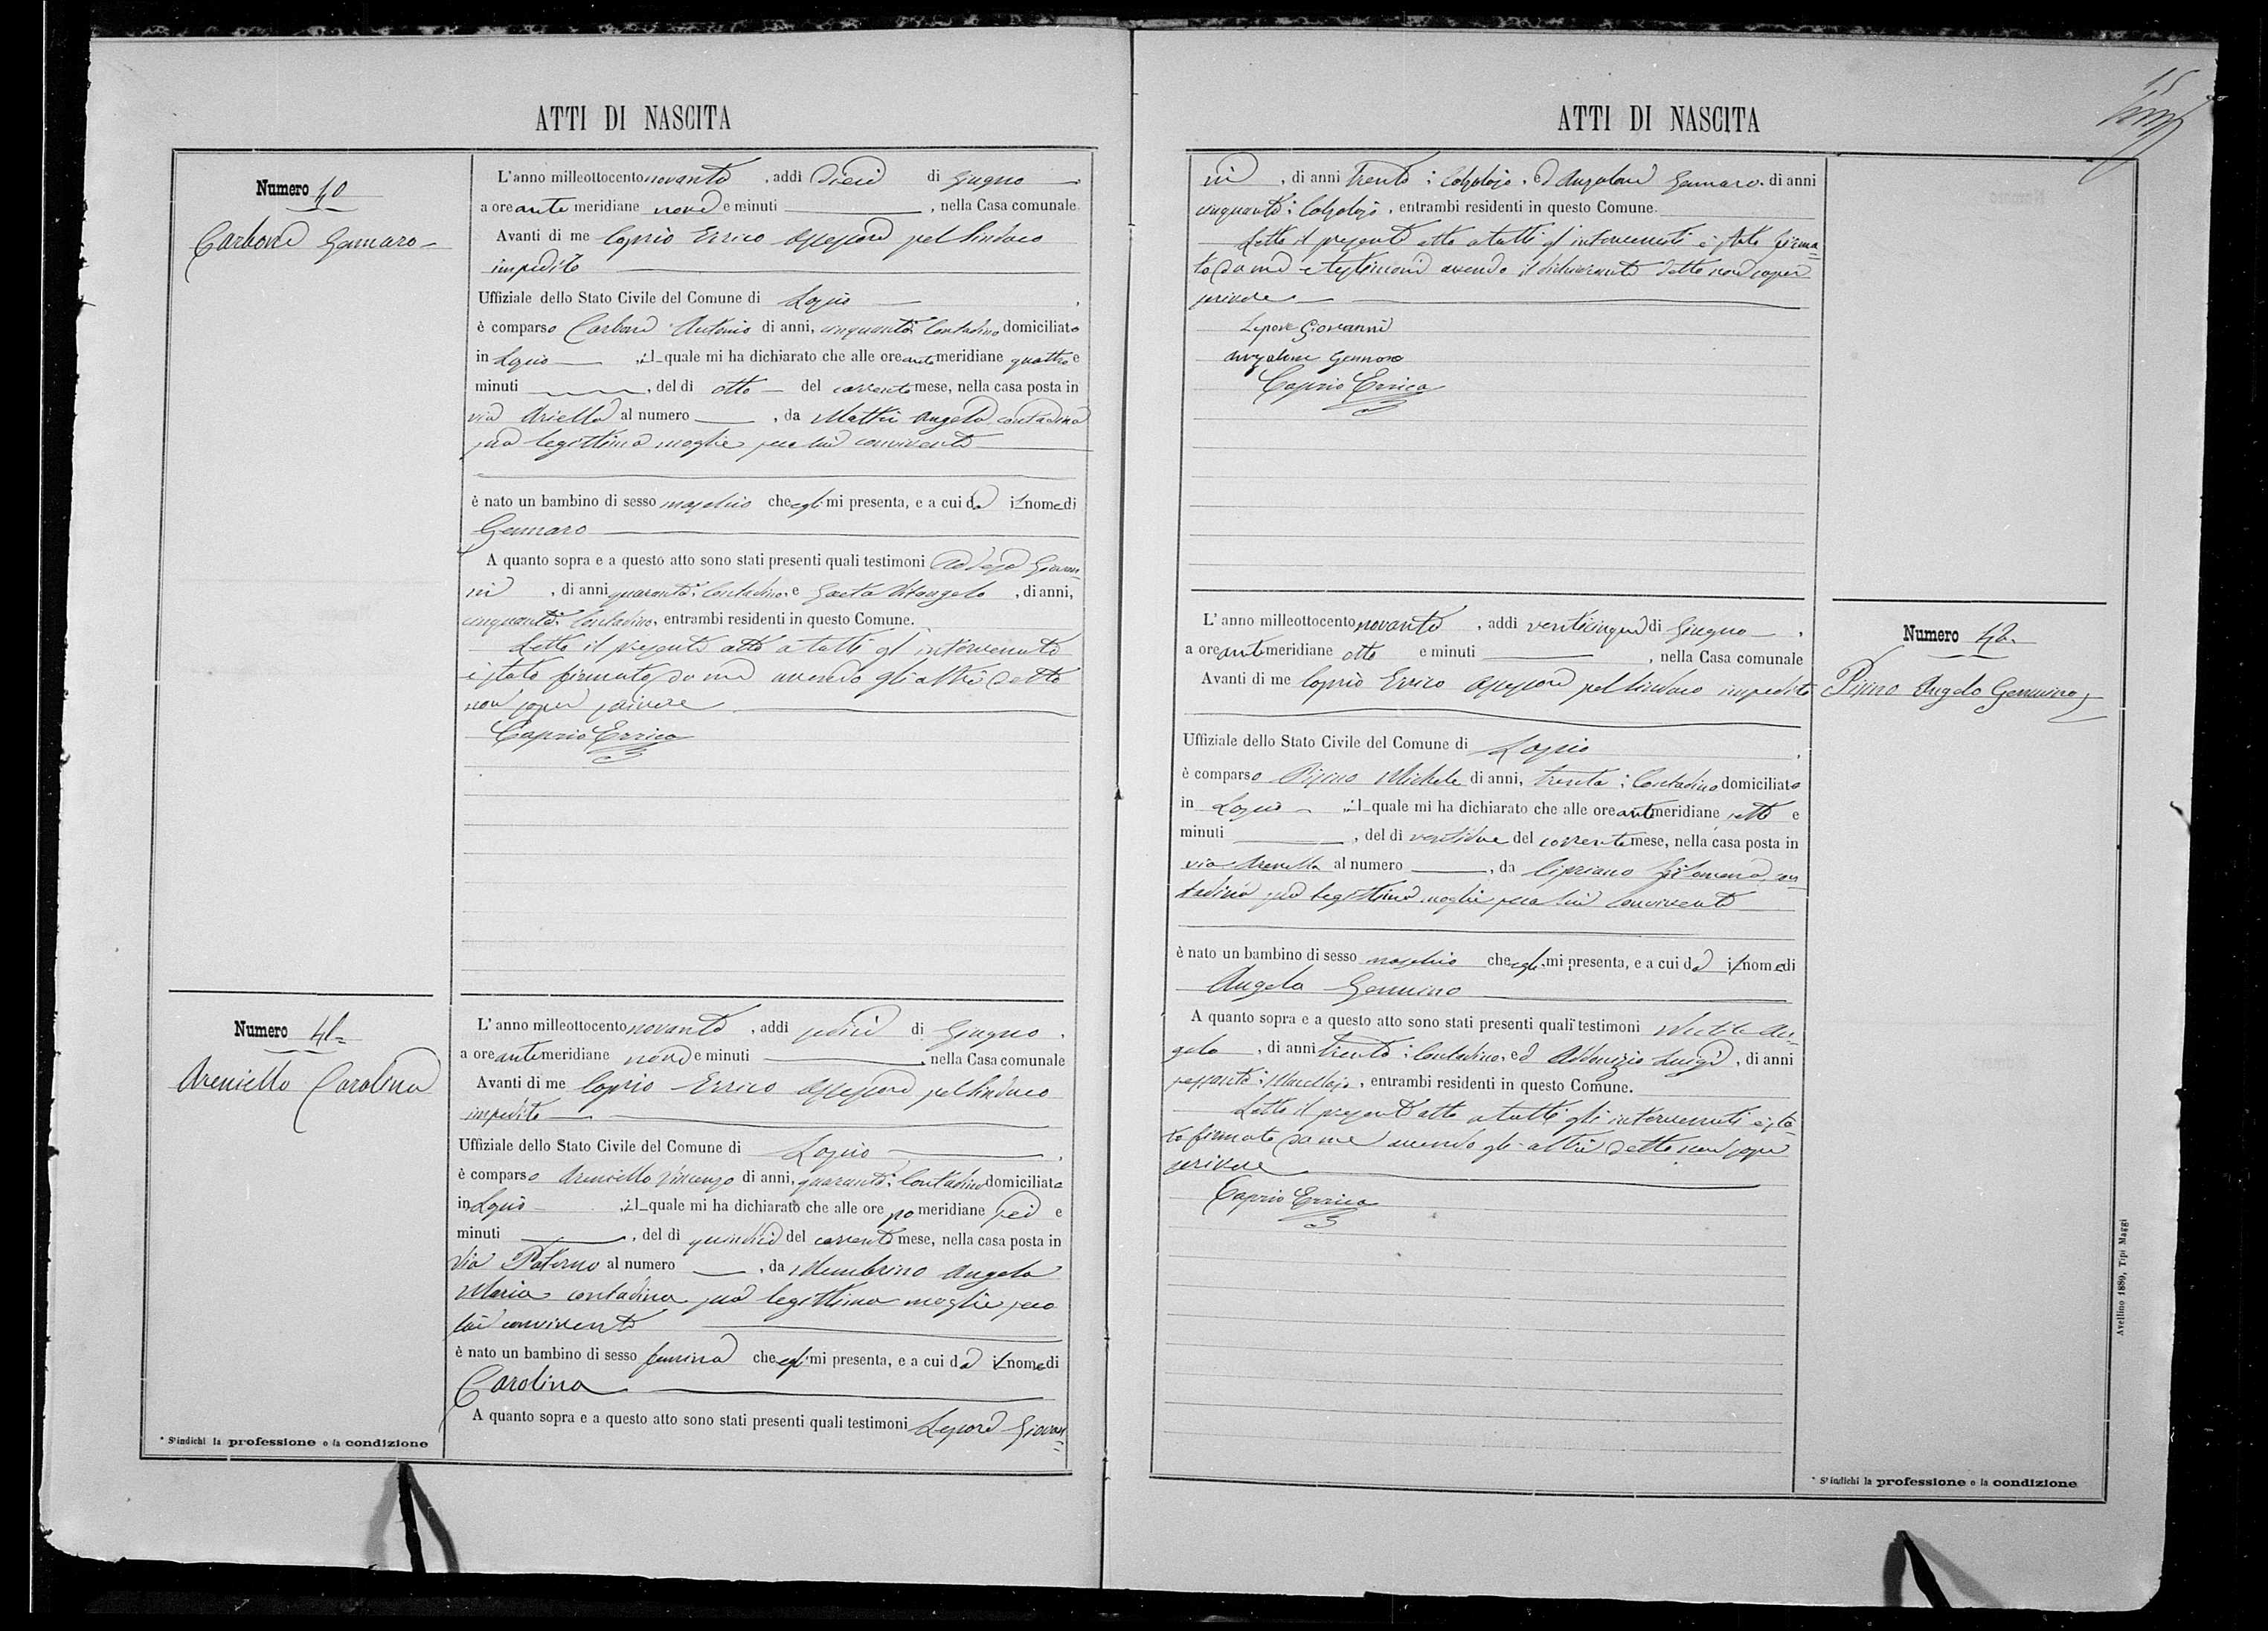 ATTI DI NASCITA
Numero 40
Carbone Gennaro
L'anno milleottocento novanta, addì dieci di Giugno
a ore ante meridiane nove e minuti, nella Casa comunale.
Avanti di me Caprio Errico Assessore pel Sindaco
impedito
Uffiziale dello Stato Civile del Comune di Lapio.
è comparso Carbone Antonio di anni, cinquanta: Contadino domiciliato
in Lapio, il quale mi ha dichiarato che alle ore ante meridiane quattro e
minuti, del dì otto del corrente mese, nella casa posta in
via Ariella al numero, da Mattii Angela contadina
sua legittima moglie seco lui convivente
è nato un bambino di sesso maschio che egli mi presenta, e a cui dà il nome di
Gennaro
A quanto sopra e a questo atto sono stati presenti quali testimoni Giovan=
ni, di anni quaranta: Contadino, e Gaeta Vitangelo, di anni,
cinquanta: Contadino, entrambi residenti in questo Comune.
Letto il presente atto a tutti gl'intervenuti
è stato firmato da me avendo gli altri detto
non saper scrivere
Caprio Errico
Numero 41=
Areniello Carolina
L'anno milleottocento novanta, addì sedici di Giugno.
a ore ante meridiane nove e minuti, nella Casa comunale
Avanti di me Caprio Errico Assessore pel Sindaco
impedito
Uffiziale dello Stato Civile del Comune di Lapio.
è comparso Areniello Vincenzo di anni, quaranta: Contadino domiciliato
in Lapio, il quale mi ha dichiarato che alle ore po meridiane sei e
minuti, del dì quindici del corrente mese, nella casa posta in
via Paterno al numero, da Membrino Angela
Maria contadina sua legittima moglie seco
lui convivente
è nato un bambino di sesso femina che egli mi presenta, e a cui dà il nome di
Carolina
A quanto sopra e a questo atto sono stati presenti quali testimoni Lepore Giovan=
* S'indichi la professione o la condizione
ATTI DI NASCITA
15
ni, di anni trenta: Calzolajo, ed Anzalone Gennaro, di anni
cinquanta: Calzolajo, entrambi residenti in questo Comune.
Letto il presente atto a tutti gl'intervenuti è stato firma=
to da me e testimoni avendo il dichiarante detto non saper
scrivere
Lepore Giovanni
Anzalone Gennaro
Caprio Errico
Numero 42.
Pisino Angelo Gennino
L'anno milleottocento novanta, addì venticinque di Giugno.
a ore ante meridiane otto e minuti, nella Casa comunale
Avanti di me Caprio Errico Assessore pel Sindaco impedito
Uffiziale dello Stato Civile del Comune di Lapio.
è comparso Pisino Michele di anni, trenta: Contadino domiciliato
in Lapio, il quale mi ha dichiarato che alle ore ante meridiane sette e
minuti, del dì ventidue del corrente mese, nella casa posta in
via Arenella al numero, da Cipriano Filomena, con=
tadina sua legittima moglie seco lui convivente
è nato un bambino di sesso maschio che egli mi presenta, e a cui dà il nome di
Angelo Gennino
A quanto sopra e a questo atto sono stati presenti quali testimoni An=
gelo, di anni trenta: Contadino, ed Abbruzio Luigi, di anni
sessanta: Macellajo, entrambi residenti in questo Comune.
Letto il presente atto a tutti gli intervenuti è sta=
to firmato da me avendo gli altri detto non saper
scrivere
Caprio Errico
Avellino 1889, Tipi Maggi
* S'indichi la professione o la condizione